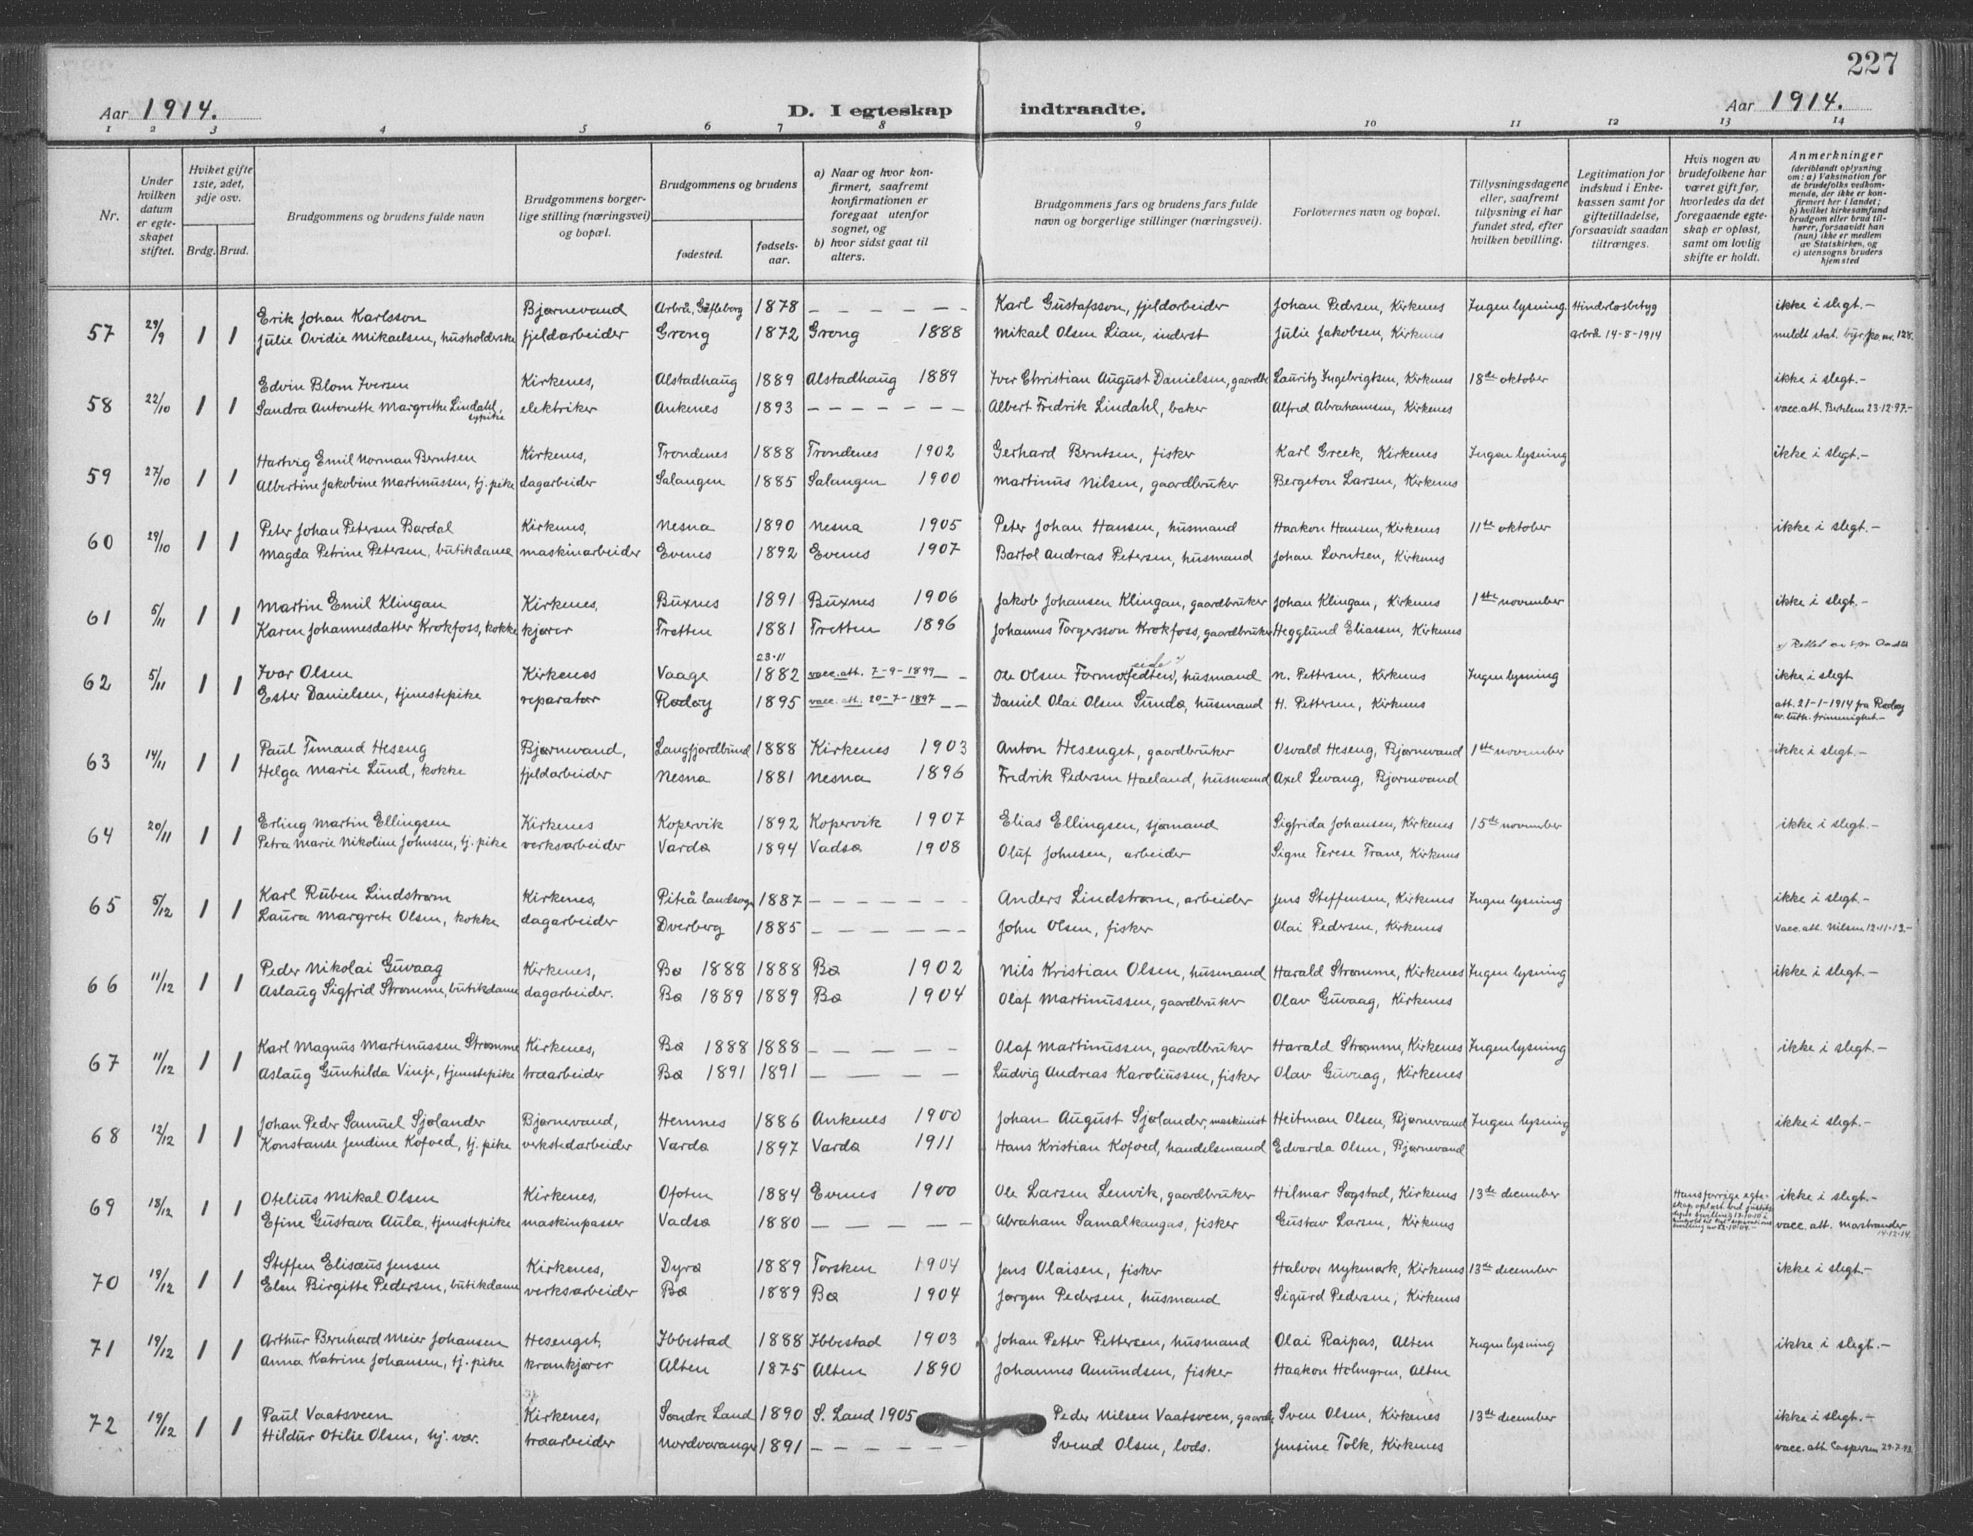 227
Aar 1914.
D. I egteskap indtraadte.
Aar 1914.
1 2 3 4 5 6 7 8 9 10 11 12 13 14
Nr.
Under hvilken datum er egteskapet stiftet.
Hviket gifte 1ste, 2det, 3dje osv.
Brdg. Brud.
Brudgommens og brudens fulde navn
Brudgommens borgerlige stilling (næringsvei) og bopæl.
Brudgommens og brudens
fødested.
fødselsaar.
a) Naar og hvor konfirmert, saafremt konfirmationen er foregaat utenfor sognet, og
b) hvor sidst gaat til alters.
Brudgommens fars og brudens fars fulde navn og borgerlige stillinger (næringsvei).
Forlovernes navn og bopæl.
Tillysningsdagene eller, saafremt tillysning ei har fundet sted, efter hvilken bevilling.
Legitimation for indskud i Enkekassen samt for giftetilladelse, forsaavidt saadan tiltrænges.
Hvis nogen av brudefolkene har været gift før, hvorledes da det foregaaende egteskap er opløst, samt om lovlig skifte er holdt.
Anmerkninger (deriblandt oplysning om: a) Vaksination for de brudefolks vedkommende, der ikke er konfirmert her i landet; b) hvilket kirkesamfund brudgom eller brud tilhører, forsaavidt han (hun) ikke er medlem av Statskirken, og c) utensogns bruders hjemsted
57 29/9 1 1 Erik Johan Karlsson Bjørnevand Arbrå, Gäfleborg 1878 – – – – Karl Gustafsson, fjeldarbeider Johan Pedersen, Kirkenes Ingen lysning Hinderløsbetyg ikke i slegt.-
Julie Ovidie Mikaelsen, husholderske fjeldarbeider Grong 1872 Grong 1888 Mikael Olsen Lian, inderst Julie Jakobsen, Kirkenes Arbrå 14-8-1914 meldt stat. byr. nr. 128.
58 22/10 1 1 Edvin Blom Iversen Kirkenes, Alstadhaug 1889 Alstadhaug 1889 Iver Christian August Danielsen, gaardbr Lauritz Ingebrigtsen, Kirkenes 18de oktober ikke i slegt.-
Sandra Antonette Margrethe Lindahl, sypike elektriker Ankenes 1893 – – – – Albert Fredrik Lindahl, baker Alfred Abrahamsen, Kirkenes vacc. att. 23-12-97.-
59 27/10 1 1 Hartvig Emil Norman Berntsen Kirkenes, Trondenes 1888 Trondenes 1902 Gerhard Berntsen, fisker Karl Greek, Kirkenes Ingen lysning ikke i slegt.-
Albertine Jakobine Martinussen, tj. pike dagarbeider Salangen 1885 Salangen 1900 Martinus Nilsen, gaardbruker Bergeton Larsen, Kirkenes
60 29/10 1 1 Peter Johan Petersen Bardal Kirkenes, Nesna 1890 Nesna 1905 Peter Johan Hansen, husmand Haakon Hansen, Kirkenes 11te oktober ikke i slegt.-
Magda Petrine Petersen, butikdame maskinarbeider Evenes 1892 Evenes 1907 Bartol Andreas Petersen, husmand Johan Lorntsen, Kirkenes
61 5/11 1 1 Martin Emil Klingan Kirkenes, Buxnes 1891 Buxnes 1906 Jakob Johansen Klingan, gaardbruker Johan Klingan, Kirkenes 1ste november ikke i slegt.-
Karen Johannesdatter Krokfoss, kokke kjører Tretten 1881 Tretten 1896 Johannes Torgersson Krokfoss, gaardbruker Hegglund Eliassen, Kirkenes
62 5/11 1 1 Ivar Olsen Kirkenes Vaage 23-11 1882 vacc. att. 7-9-1899 – – Ole Olsen Formofedten, husmand N. Pettersen, Kirkenes Ingen lysning ikke i slegt
Ester Danielsen, tjenestepike reparatør Rødøy 1895 vacc. att. 20-7-1897 – – Daniel Olai Olsen Sundø, husmand H. Pettersen, Kirkenes att. 21-1-1914 fra Rødøy ev. luth. frimenighet.-
63 14/11 1 1 Paul Timand Heseng Bjørnevand, Langfjordbund 1888 Kirkenes 1903 Anton Hesenget, gaardbruker Osvald Heseng, Bjørnevand 1ste november ikke i slegt.-
Helga Marie Lund, kokke fjeldarbeider Nesna 1881 Nesna 1896 Fredrik Pedersen Haeland, husmand Axel Levang, Bjørnevand
64 20/11 1 1 Erling Martin Ellingsen Kirkenes Kopervik 1892 Kopervik 1907 Elias Ellingsen, sjømand Sigfrida Johansen, Kirkenes 15de november ikke i slegt.-
Petra Marie Nikoline Johnsen, tj. pike verksarbeider Vardø 1894 Vadsø 1908 Oluf Johnsen, arbeider Signe Terese Trane, Kirkenes
65 5/12 1 1 Karl Ruben Lindstrøm Kirkenes, Piteå landsogn 1887 – – – – Anders Lindstrøm, arbeider Jens Steffensen, Kirkenes Ingen lysning ikke i slegt.-
Laura Margrete Olsen, kokke dagarbeider Dverberg 1885 – – – – John Olsen, fisker Olai Pedersen, Kirkenes Vacc. att. Nilsen 12-11-13.-
66 11/12 1 1 Peder Nikolai Guvaag Kirkenes, Bø 1888 1888 Bø 1902 Nils Kristian Olsen, husmand Harald Strømme, Kirkenes Ingen lysning ikke i slegt.-
Aslaug Sigfrid Strømme, butikdame dagarbeider. Bø 1889 1889 Bø 1904 Olaf Martinussen, gaardbruker Olav Guvaag, Kirkenes
67 11/12 1 1 Karl Magnus Martinussen Strømme Kirkenes, Bø 1888 1888 – – – – Olaf Martinussen, gaardbruker Harald Strømme, Kirkenes Ingen lysning ikke i slegt.-
Aslaug Gunhilda Vinje, tjenestepike træarbeider Bø 1891 1891 – – – – Ludvig Andreas Karoliussen, fisker Olav Guvaag, Kirkenes
68 12/12 1 1 Johan Peder Samuel Sjølander Bjørnevand, Hemnes 1886 Ankenes 1900 Johan August Sjølander, maskinist Heitman Olsen, Bjørnevand Ingen lysning ikke i slegt.-
Konstanse Jendine Kofoed, tj. pike verkstedarbeider Vardø 1897 Vardø 1911 Hans Kristian Kofoed, handelsmand Edvarda Olsen, Bjørnevand
69 18/12 1 1 Otelius Mikal Olsen Kirkenes, Ofoten 1884 Evenes 1900 Ole Larsen Lenvik, gaardbruker Hilmar Søgstad, Kirkenes 13de december Hans forrige egteskap opløst ved ikke i slegt.-
Efine Gustava Aula, tjenestepike maskinpasser Vadsø 1880 – – – – Abraham Samalkangas, fisker Gustav Larsen, Kirkenes vacc. att. Mastrander 14-12-14.
70 19/12 1 1 Steffen Elisæus Jensen Kirkenes, Dyrø 1889 Torsken 1904 Jens Olaisen, fisker Halvor Nykmark, Kirkenes 13de december ikke i slegt.-
Elen Birgitte Pedersen, butikdame verksarbeider Bø 1889 Bø 1904 Jørgen Pedersen, husmand Sigurd Pedersen, Kirkenes
71 19/12 1 1 Arthur Bernhard Meier Johansen Hesenget, Ibbestad 1888 Ibbestad 1903 Johan Petter Pettersen, husmand Olai Raipas, Alten Ingen lysning ikke i slegt.-
Anna Katrine Johansen, tj. pike krankjører Alten 1875 Alten 1890 Johannes Amundsen, fisker Haakon Holmgren, Alten
72 19/12 1 1 Paul Vaatsveen Kirkenes, Søndre Land 1890 S. Land 1905 Peder Nilsen Vaatsveen, gaardbr Sven Olsen, Kirkenes 13de december ikke i slegt.-
Hildur Otilie Olsen, tj. vær. træarbeider Nordvaranger 1891 – – – – Svend Olsen, lods. Jensine Tolk, Kirkenes vacc. att. Caspersen 29-7-93.